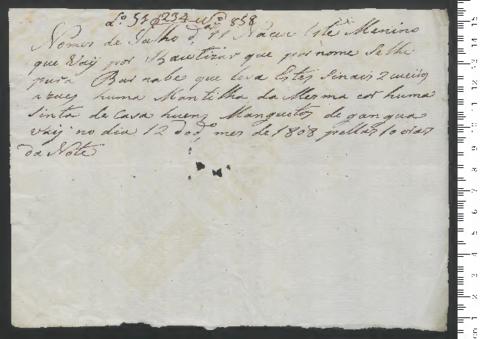 Lº 55 p 234 Nº 858
Nomes de Julho d 11 Naceu Este Menino
que Vaÿ por Bautizar que por nome Se lhe
pora Barnabe que leva Estes Sinais 2 cueiros
azues huma Mantilha da Mesma cor huma
sinta de casa huens Manguitos de ganga
vaÿ no dia 12 do d mes de 1808 pellas 10 oras
da Note